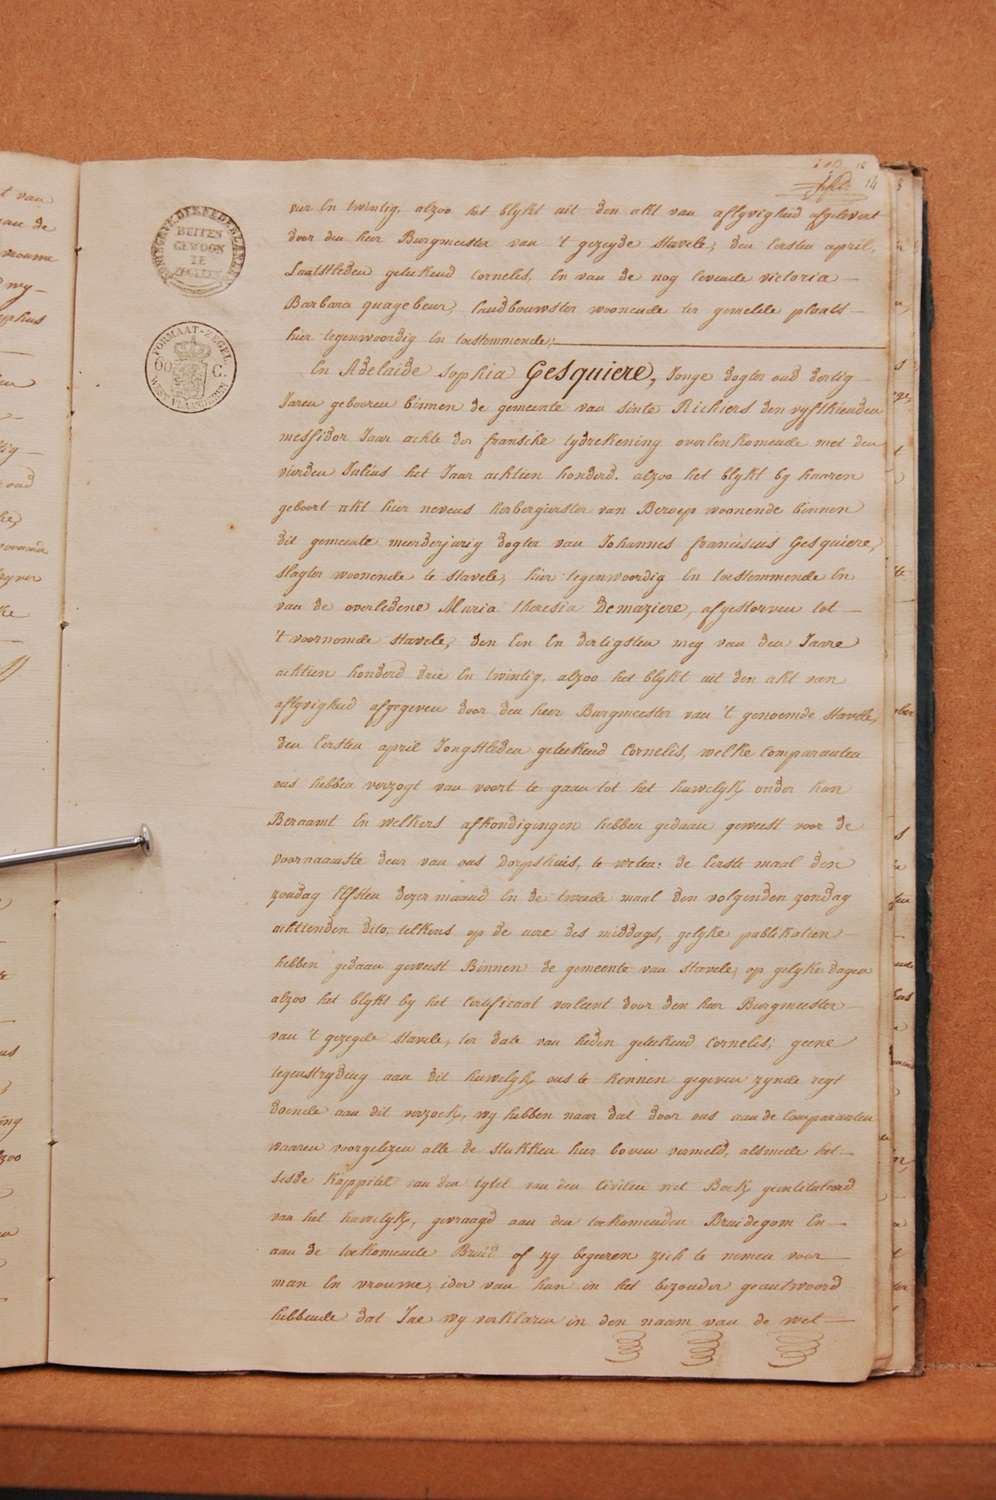 14
KONINGRYK DER NEDERLANDEN
BUITEN
GEWOON
FORMAAT-ZEGEL
60 C.
WEST-VLAANDEREN
vier En twintig, alzoo het blykt uit den akt van aflyvigheid afgelevert
door den heer Burgmeester van 't gezeyde Stavele, den Eersten april,
Laatstleden geteekend Cornelis, En van de nog Levende victoria
Barbara quagebeur, Landbouwster woonende ter gemelde plaats
hier tegenwoordig En toestemmende;
En Adelaide Sophia Gesquiere, Jonge dogter oud dertig
Jaren gebooren binnen de gemeente van Sinte Richiers den vyfthienden
messidor Jaar achte der fransche tydrekening overeenkomende met den
vierden Julius het Jaar achtien honderd, alzoo het blykt by haaren
geboort akt hier nevens herbergierster van Beroep woonende binnen
dit gemeente meerderjarig dogter van Johannes franciscus Gesquiere,
slagter woonende te Stavele, hier tegenwoordig En toestemmende En
van de overledene Maria theresia Demaziere, afgestorven tot
't voornomde Stavele, den Een En dertigsten mey van den Jaare
achtien honderd drie En twintig, alzoo het blykt uit den akt van
aflyvigheid afgegeven door den heer Burgmeester van 't genoemde Stavele,
den Eersten april Jongstleden geteekend Cornelis, welke Comparanten
ons hebben verzogt van voort te gaan tot het huwelyk onder hun
Beraamt En welkers afkondigingen hebben gedaan geweest voor de
voornaamste deur van ons dorpshuis, te weten: de Eerste maal den
zondag Elfsten dezer maand En de tweede maal den volgenden zondag
achttienden dito, telkens op de uere des middags, gelyke publikatien
hebben gedaan geweest Binnen de gemeente van Stavele, op gelyke dagen
alzoo het blykt by het Certificaat verleent door den heer Burgmeester
van 't gezegde Stavele, ter date van heden geteekend Cornelis; geene
tegenstryding aan dit huwelyk ons te kennen gegeven zynde regt
doende aan dit verzoek, wy hebben naar dat door ons aan de Comparanten
waaren voorgelezen alle de stukken hier boven vermeld, alsmede het
sesde kappitel van den tytel van den Civilen wet Boek geintituleerd
van het huwelyk, gevraagd aan den toekomenden Bruidegom En
aan de toekomende Bruid of zy begeeren zich te nemen voor
man En vrouwe, ider van hun in het bezonder geantwoord
hebbende dat Jae wy verklaren in den naam van de wet